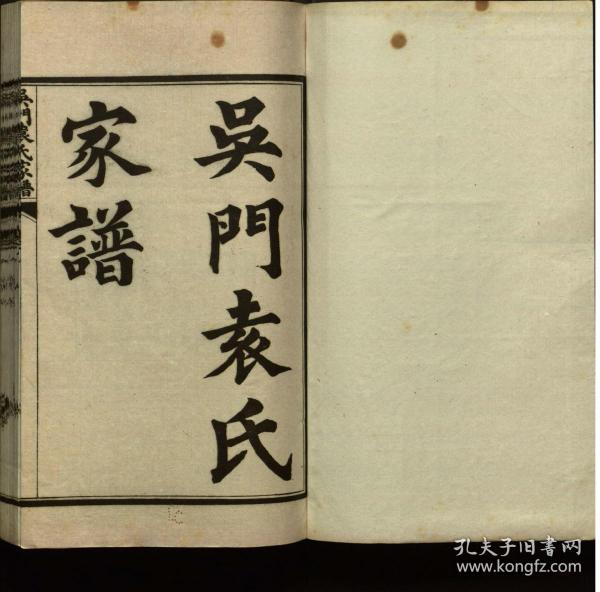 吳門袁氏
家譜
吳門袁氏家譜
孔夫子旧书网
www.kongfz.com